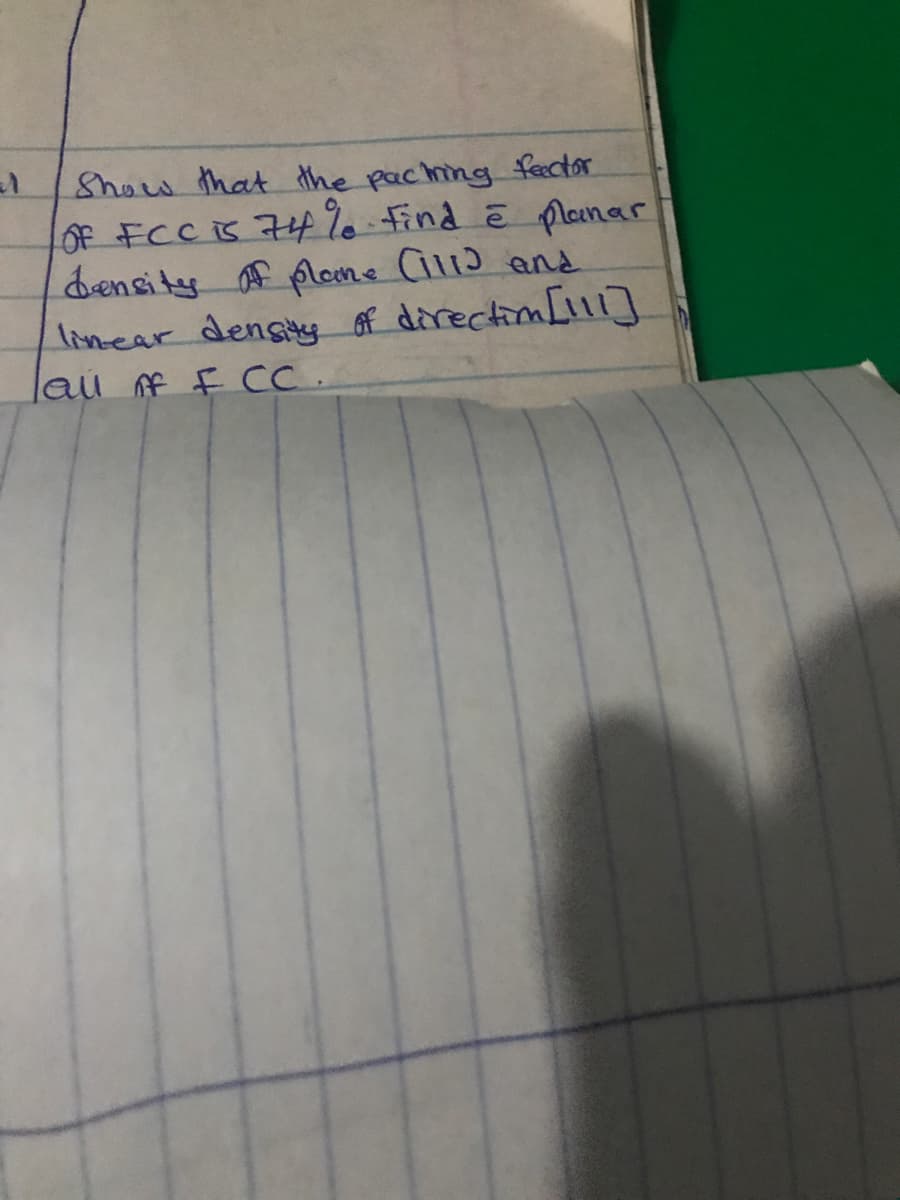 Show that the packing factor
of FCC is 74%. find ē planar
density of plane (111) and
linear density of direction [111]
all of FCC.